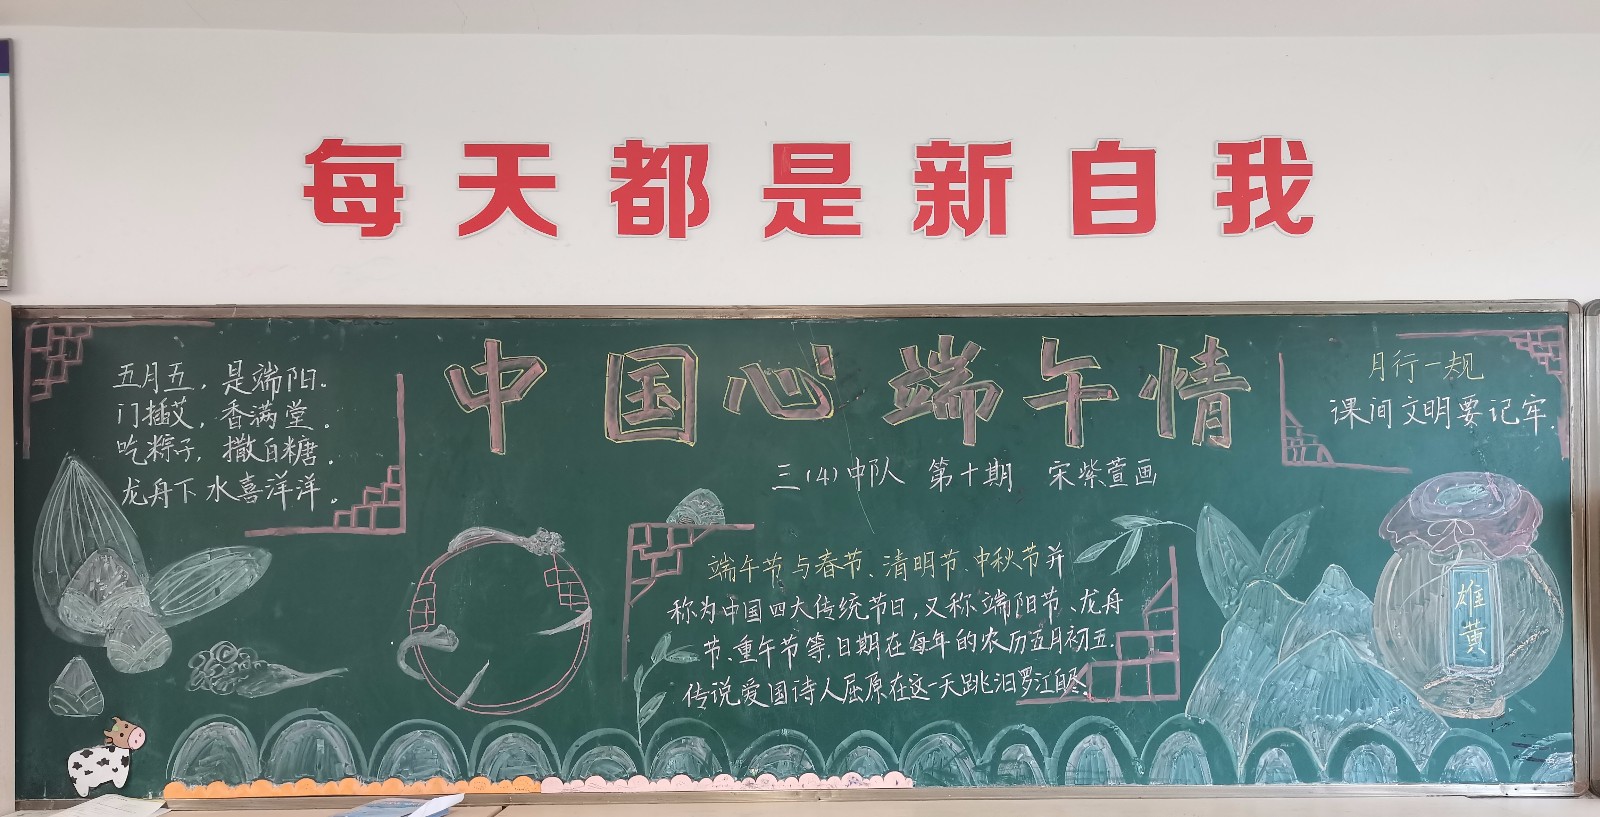 每天都是新自我
中国心端午情
三(4)中队 第十期 宋紫萱画
五月五，是端阳.
门插艾，香满堂.
吃粽子，撒白糖.
龙舟下水喜洋洋.
端午节与春节、清明节、中秋节并
称为中国四大传统节日，又称端阳节、龙舟
节、重午节等，日期在每年的农历五月初五.
传说爱国诗人屈原在这一天跳汨罗江自尽.
月行一规
课间文明要记牢.
雄黄